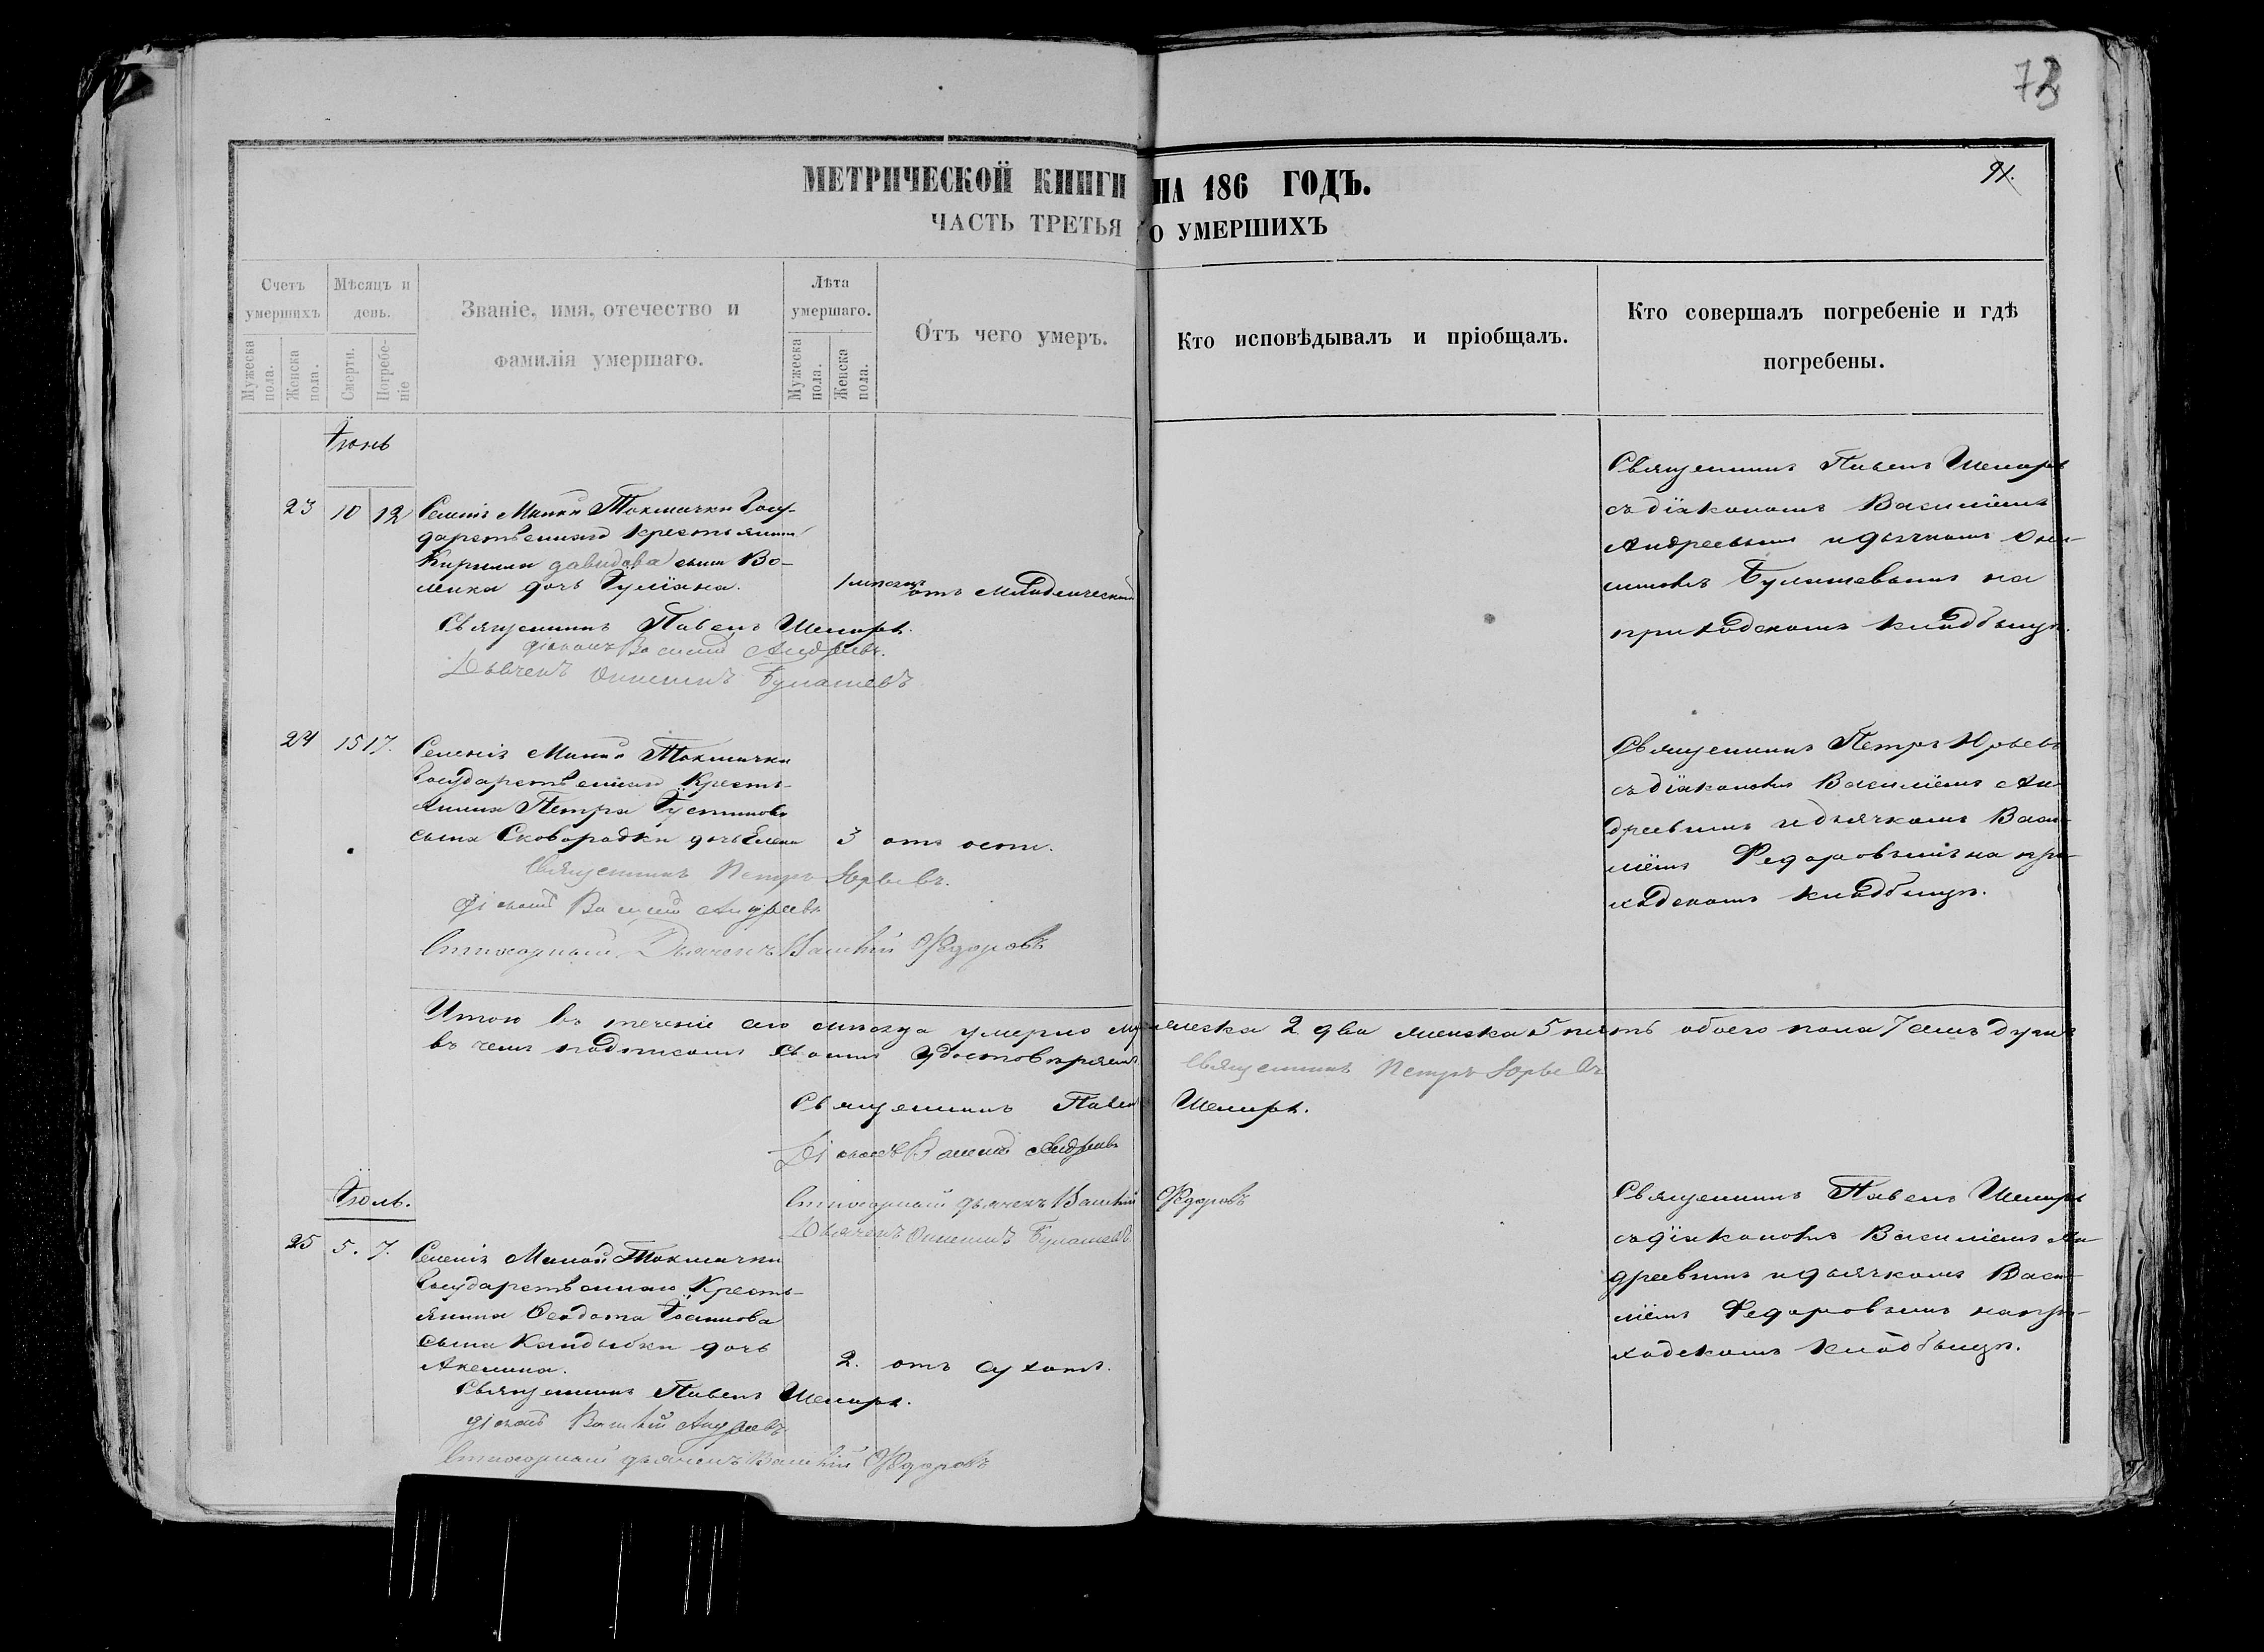 73
91.
МЕТРИЧЕСКОЙ КНИГИ НА 186 ГОДЪ.
ЧАСТЬ ТРЕТЬЯ О УМЕРШИХЪ
Счетъ умершихъ
Мужеска пола.
Женска пола.
Мѣсяцъ и день.
Смерти.
Погребеніе
Званіе, имя, отечество и фамилія умершаго.
Лѣта умершаго.
Мужеска пола.
Женска пола.
Отъ чего умеръ.
Кто исповѣдывалъ и пріобщалъ.
Кто совершалъ погребеніе и гдѣ погребены.
Іюнь
23 10 12 Селенія Малой Токмачки Госу-
дарственнаго Крестьянина
Кирилла Давидова сына Во-
лика дочь Іуліана. 1 мѣсяцъ отъ младенческой
Священникъ Павелъ
Діаконъ Василій Андреевъ.
Дьячекъ Онисимъ Булашевъ
Священникъ Павелъ
съ діакономъ Василіемъ
Андреевымъ и дьячкомъ Они-
симомъ Булашевымъ на
приходскомъ кладбищѣ.
24 15 17. Селенія Малой Токмачки
Государственнаго Кресть-
янина Петра Іустинова
сына Сковородки дочь Елена 3 отъ оспы.
Священникъ Петръ Юрьевъ.
Діаконъ Василій Андреевъ
Дьячекъ Василій Федоровъ
Священникъ Петръ Юрьевъ
съ діакономъ Василіемъ Ан-
дреевымъ и дьячкомъ Васи-
ліемъ Федоровымъ на при-
ходскомъ кладбищѣ.
Итого въ теченіе сего мѣсяца умерло мужеска 2 два женска 5 пять обоего пола 7 семь душъ
въ чемъ подписомъ своимъ удостовѣряемъ
Священникъ Петръ Юрьевъ
Священникъ Павелъ
Діаконъ Василій Андреевъ
дьячекъ Василій Федоровъ
Дьячекъ Онисимъ Булашевъ
Іюль.
25 5. 7. Селенія Малой Токмачки
Государственнаго Кресть-
янина Феодота Іоаннова
сына Кандыбки дочь
Акелина. 2. отъ сухотъ.
Священникъ Павелъ
Діаконъ Василій Андреевъ
дьячекъ Василій Федоровъ
Священникъ Павелъ
съ діакономъ Василіемъ Ан-
дреевымъ и дьячкомъ Васи-
ліемъ Федоровымъ на при-
ходскомъ кладбищѣ.